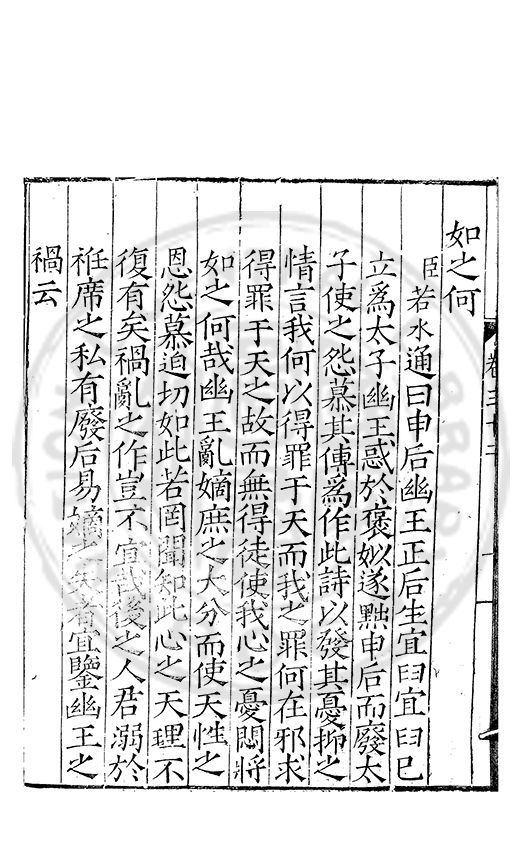 如之何
臣若水通曰申后幽王正后生宜臼宜臼已
立爲太子幽王惑於褒姒遂黜申后而廢太
子使之怨慕其傅爲作此詩以發其憂抑之
情言我何以得罪于天而我之罪何在邪求
得罪于天之故而無得徒使我心之憂悶將
如之何哉幽王亂嫡庶之大分而使天性之
恩怨慕迫切如此若罔聞知此心之天理不
復有矣禍亂之作豈不宜哉後之人君溺於
袵席之私有廢后易嫡之失者宜鑒幽王之
禍云
卷三十二